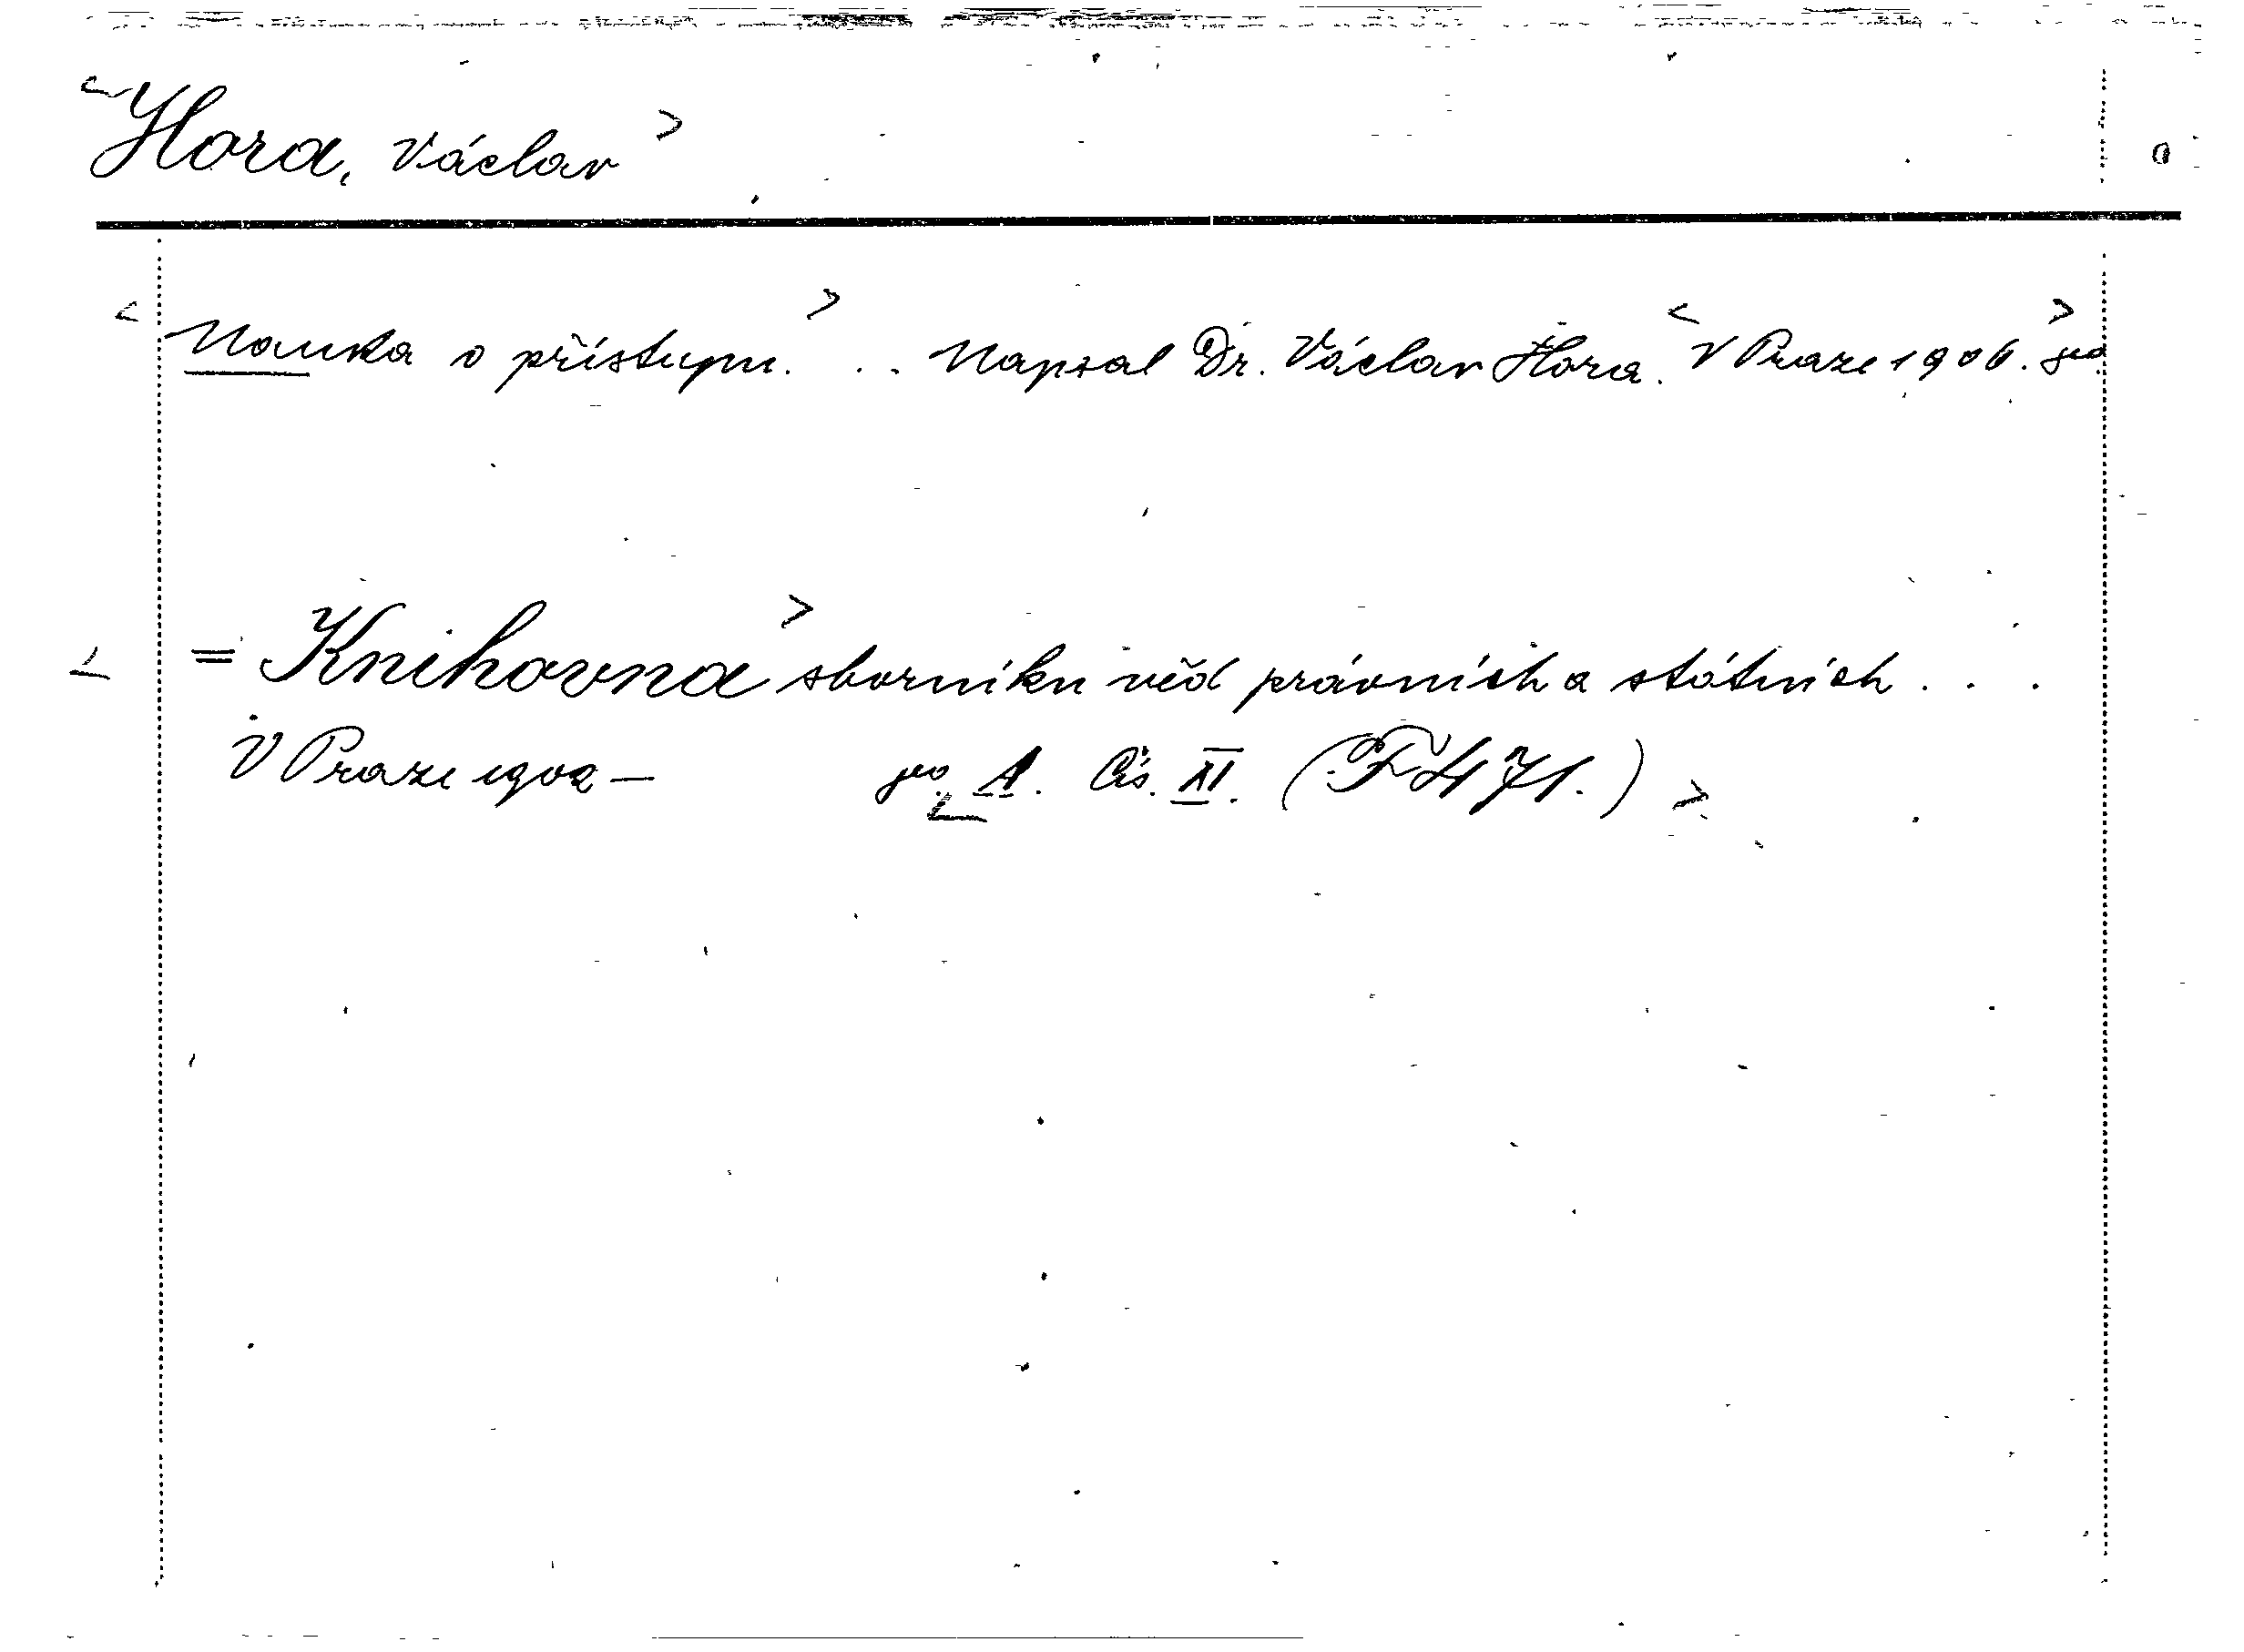 <Hora, Václav>
<Nauka o přístupu.> . . Napsal Dr. Václav Hora. <V Praze 1906.> 8vo.
< = Knihovna> sborníku věd právních a státních . . .
V Praze 1902 – 8vo. <A. Čís. XI. (F 471.)>